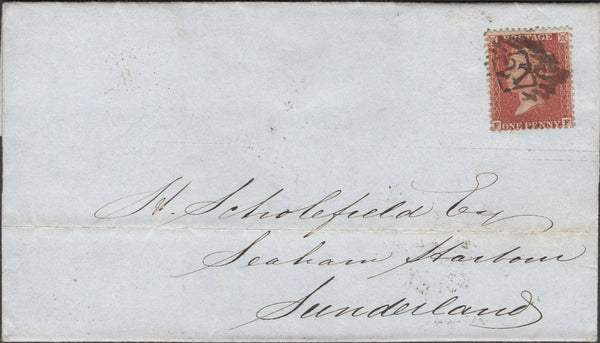 POSTAGE
ONE PENNY
H. Scholefield Esq
Seaham Harbour
Sunderland